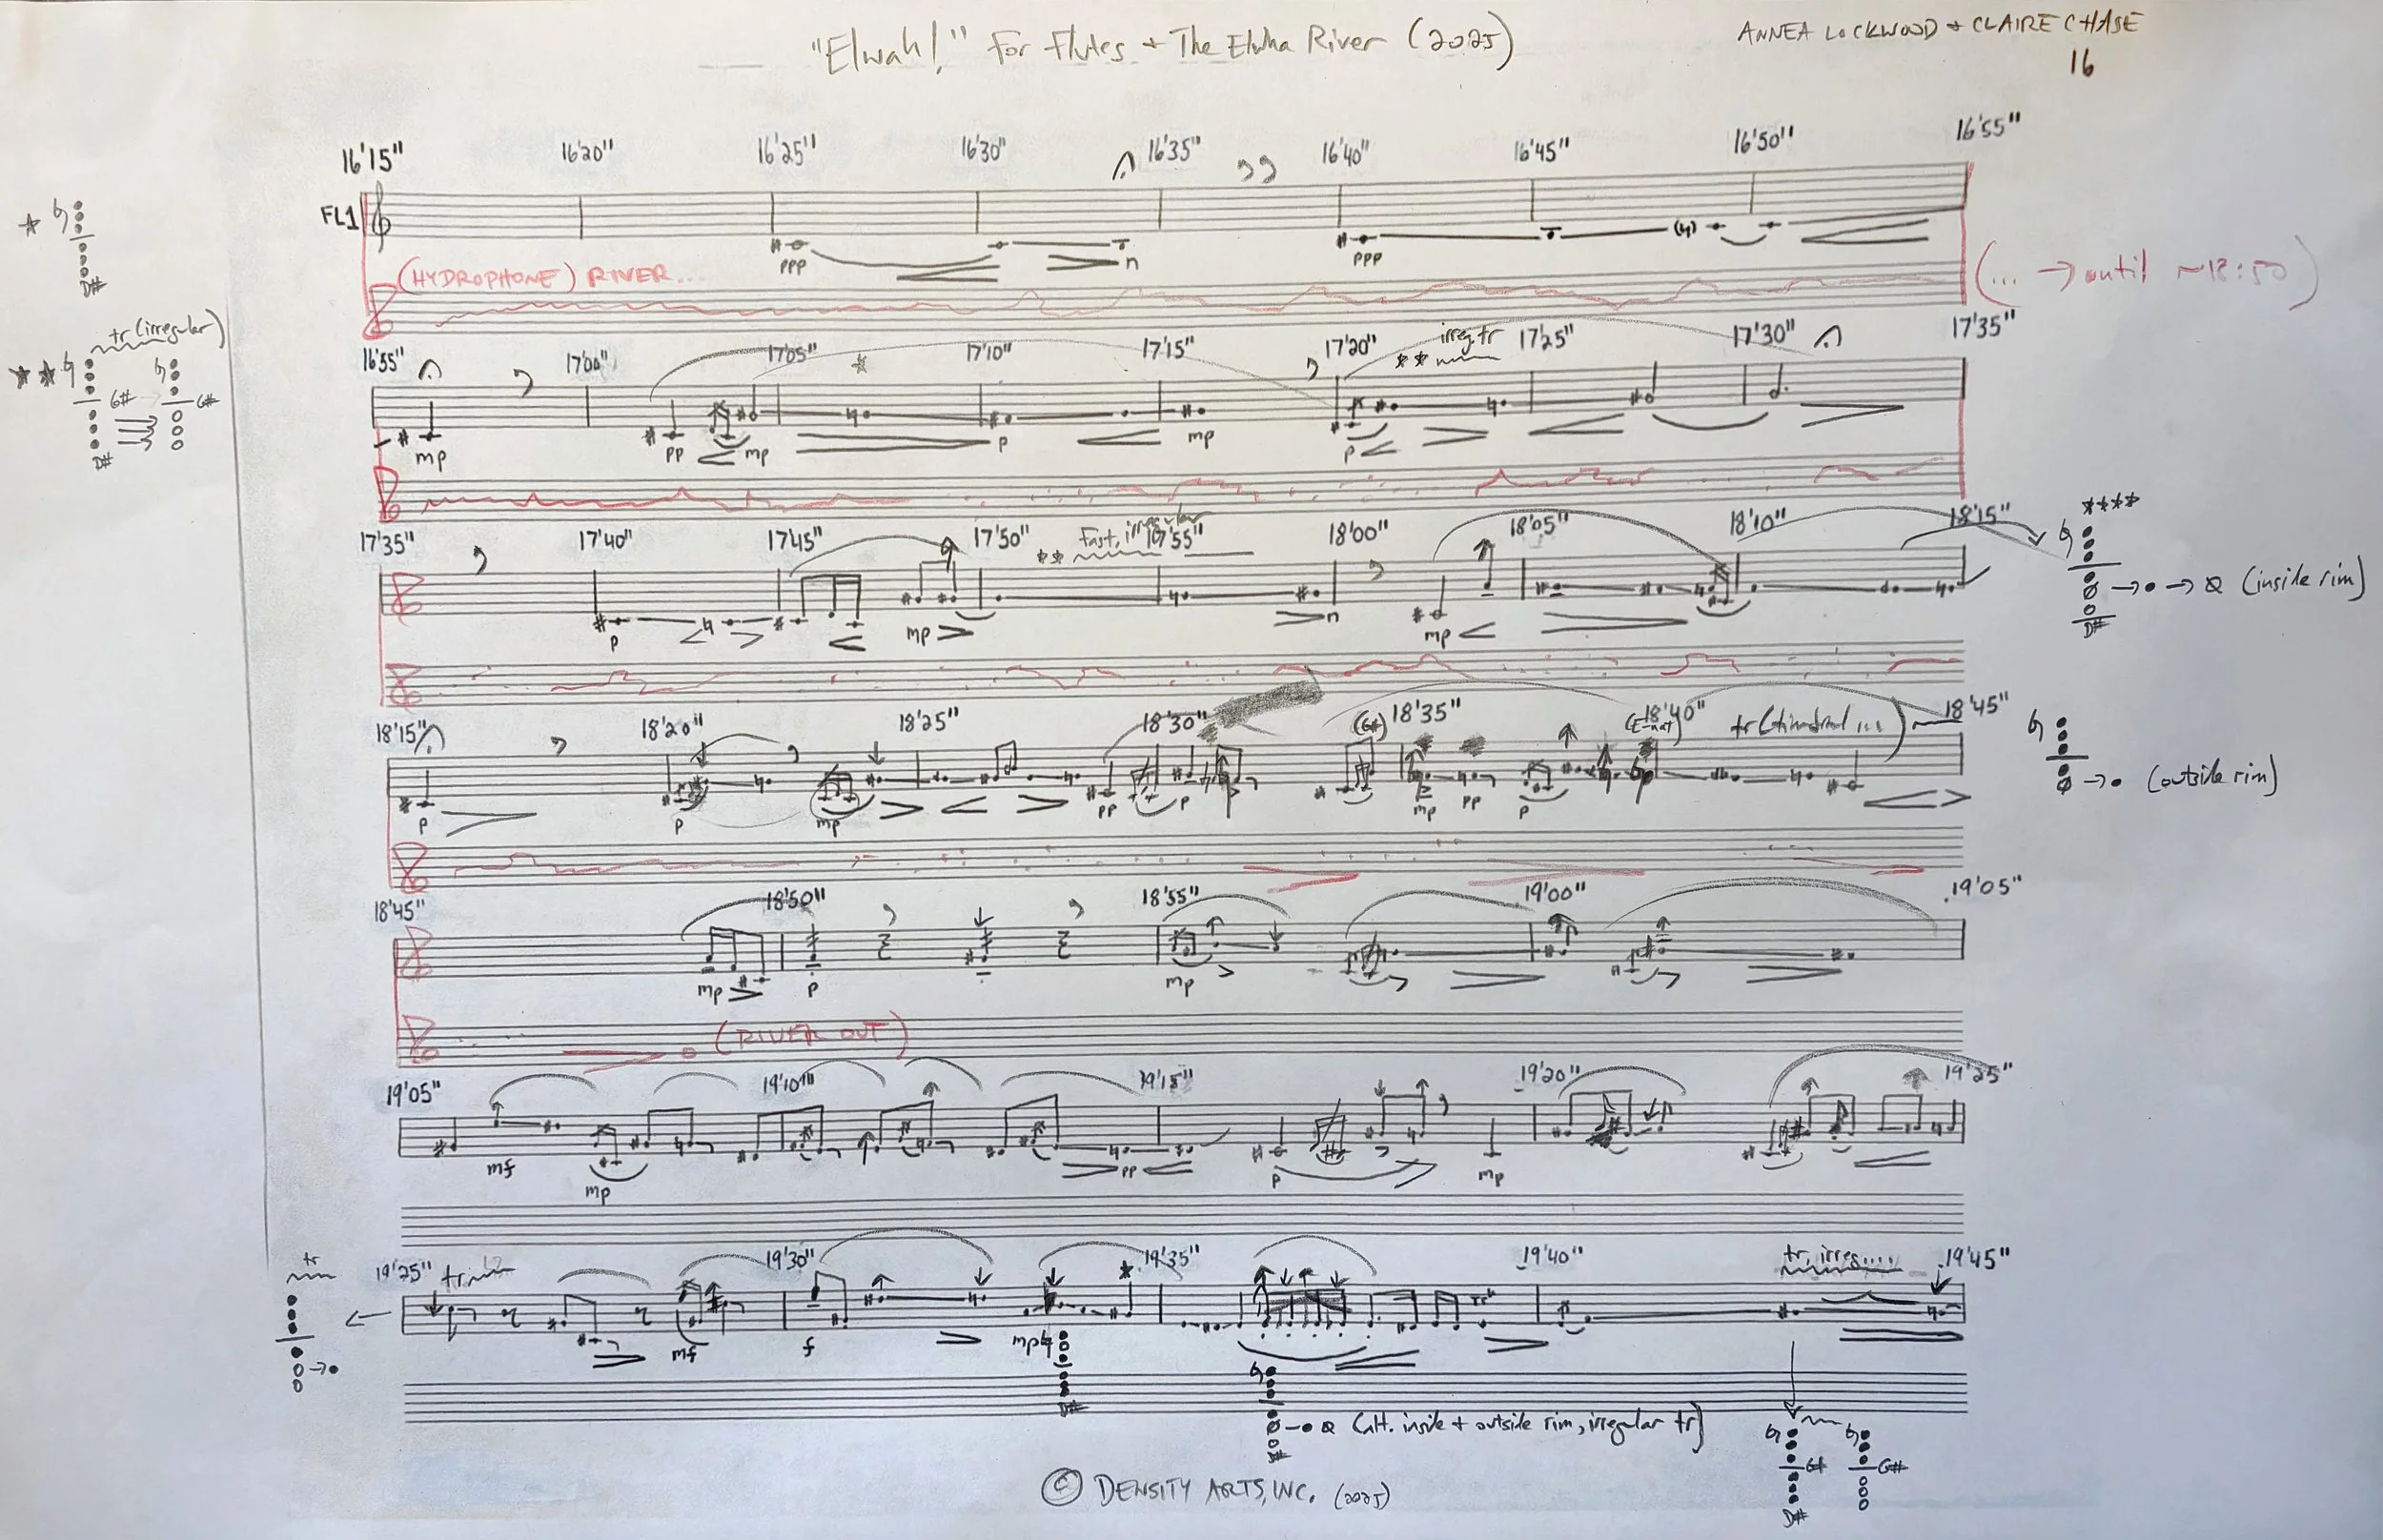 "Elwah!" For Flutes + The Elwha River (2025)
ANNEA LOCKWOOD + CLAIRE CHASE
16
16'15" 16'20" 16'25" 16'30" 16'35" 16'40" 16'45" 16'50" 16'55"
FL1
ppp n ppp
D#
(HYDROPHONE) RIVER...
(... → until ~18:50)
tr (irregular)
G# G#
D#
16'55" 17'00" 17'05" 17'10" 17'15" 17'20" irreg tr 17'25" 17'30" 17'35"
mp pp mp p mp p
17'35" 17'40" 17'45" 17'50" Fast, irregular 17'55" 18'00" 18'05" 18'10" 18'15"
p mp n mp
(inside rim)
D#
18'15" 18'20" 18'25" 18'30" 18'35" 18'40" tr 18'45"
p p mp pp p mp pp p
(outside rim)
18'45" 18'50" 18'55" 19'00" 19'05"
mp p mp
(RIVER OUT)
19'05" 19'10" 19'15" 19'20" 19'25"
mf mp pp p mp
tr
19'25" tr 19'30" 19'35" 19'40" tr, irreg.... 19'45"
mf f mp
D#
(alt. inside + outside rim, irregular tr)
G# G#
D#
© DENSITY ARTS, INC. (2025)